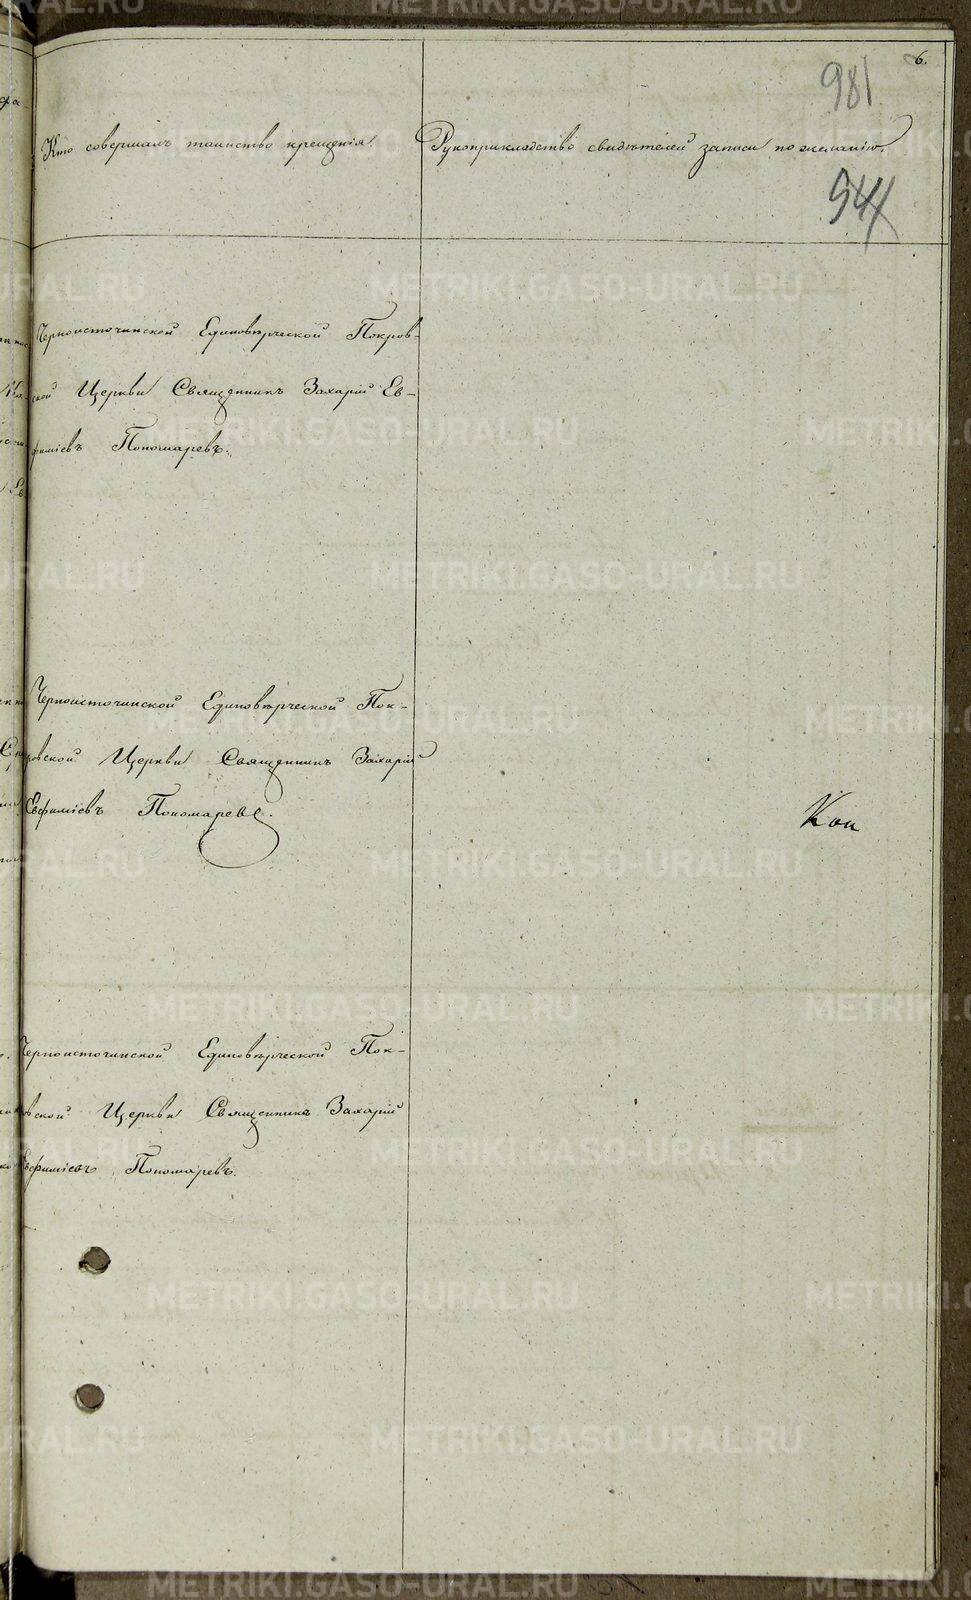 6.
981
544
Кто совершалъ таинство крещенія.
Рукоприкладство свидѣтелей записи по желанію.
Черноисточинской Единовѣрческой Покров-
ской Церкви Священникъ Захарій Ев-
фиміевъ Пономаревъ.
Черноисточинской Единовѣрческой Пок-
ровской Церкви Священникъ Захарій
Евфиміевъ Пономаревъ.
Кон
Черноисточинской Единовѣрческой Пок-
ровской Церкви Священникъ Захарій
Евфиміевъ Пономаревъ.
METRIKI.GASO-URAL.RU